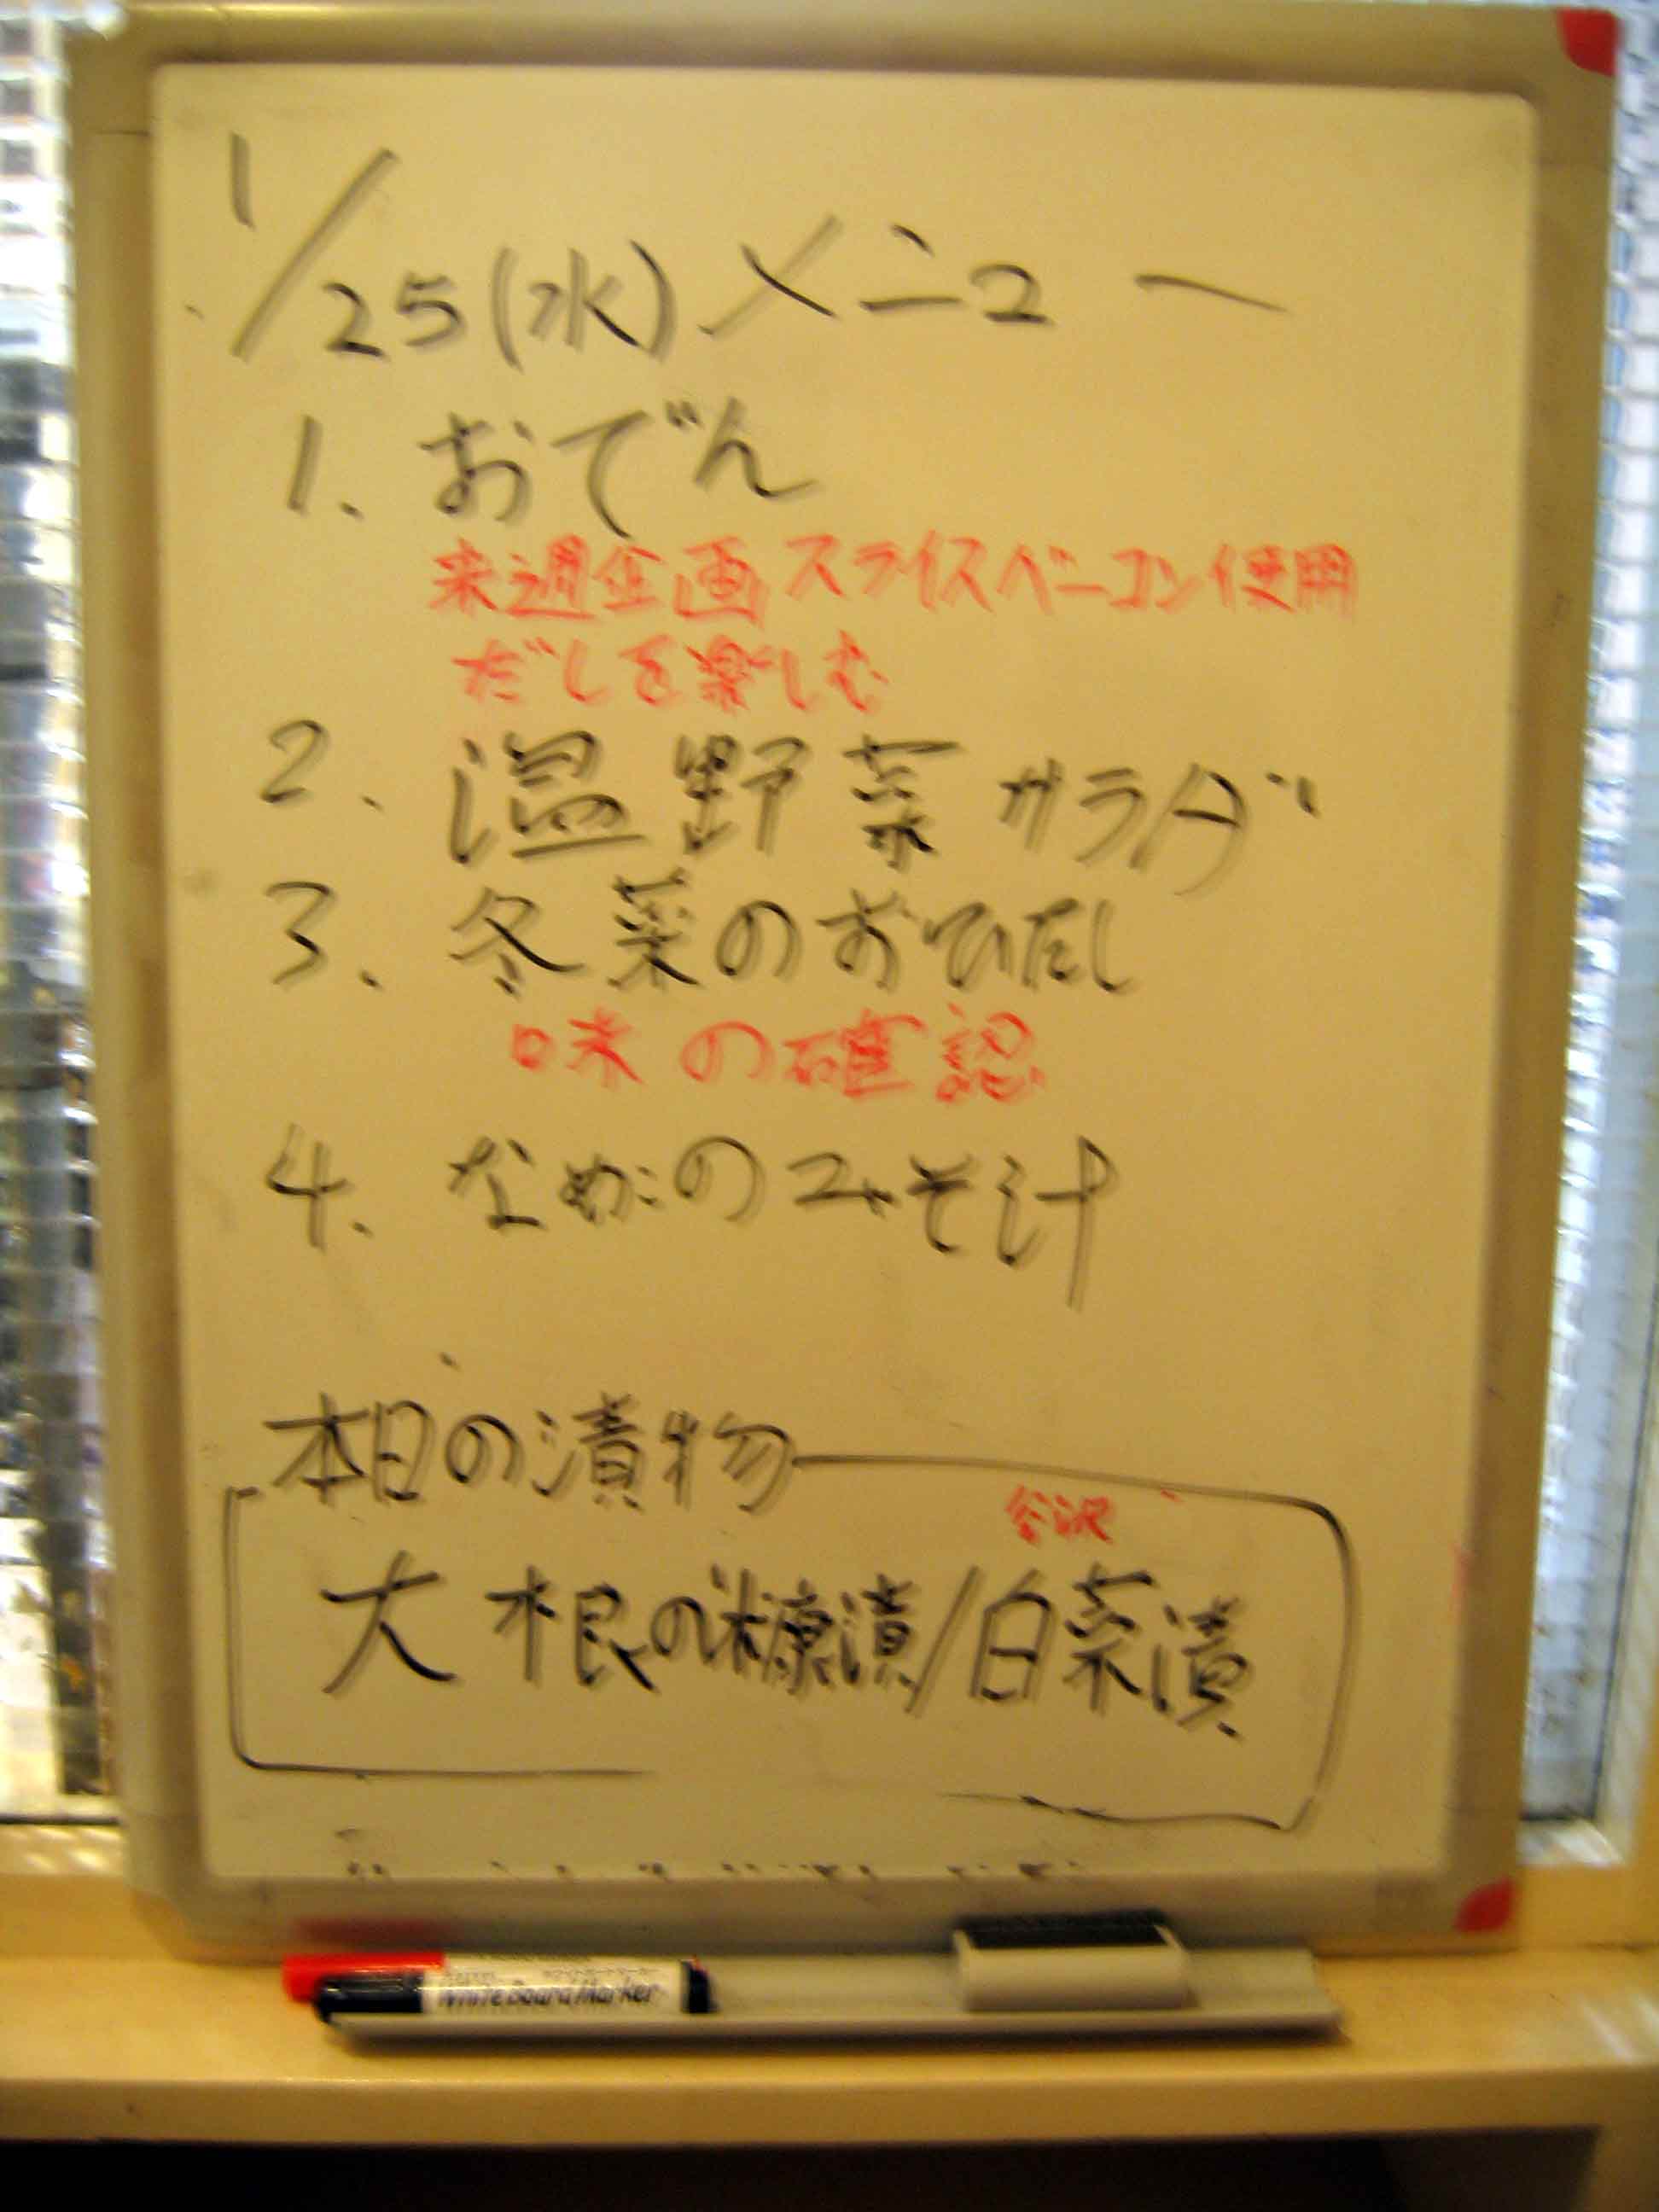 1/25(水)メニュー
1. おでん
来週企画 スライスベーコン使用
だしを楽しむ
2. 温野菜サラダ
3. 冬菜のおひたし
味の確認
4. なめこのみそ汁
本日の漬物
谷沢
大根の糠漬/白菜漬
White Board Marker